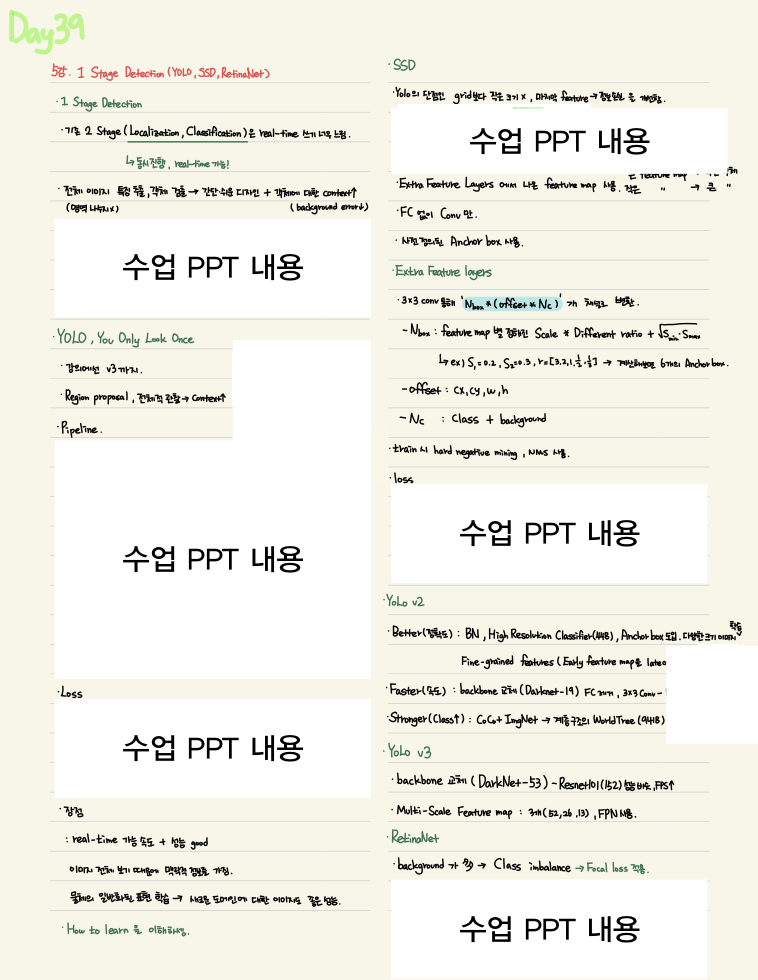 Day39
5강. 1 Stage Detection (YOLO, SSD, RetinaNet)
· 1 Stage Detection
· 기존 2 Stage (Localization, Classification)은 real-time 쓰기 너무 느림.
↳ 동시진행, real-time 가능!
· 전체 이미지 특징 추출, 객체 검출 → 간단·쉬운 디자인 + 객체에 대한 context↑
(영역 나누지 x) (background error↓)
수업 PPT 내용
· YOLO, You Only Look Once
· 강의에선 v3까지.
· Region proposal, 전체적 관찰 → Context↑
· Pipeline.
수업 PPT 내용
· Loss
수업 PPT 내용
· 장점
: real-time 가능 속도 + 성능 good
이미지 전체 보기 때문에 맥락적 정보를 가짐.
물체의 일반화된 표현 학습 → 새로운 도메인에 대한 이미지도 좋은 성능.
· How to learn 을 이해하셈.
· SSD
· Yolo의 단점인 grid보다 작은 크기 x, 마지막 feature → 정보손실 을 개선함.
수업 PPT 내용
· Extra Feature Layers 에서 나온 feature map 사용. 작은 " → 큰 "
· FC 없이 Conv 만.
· 사전정의된 Anchor box 사용.
· Extra Feature layers
· 3x3 conv 통해 'Nbox * (offset * Nc)' 개 채널로 변환.
- Nbox : feature map 별 정해진 Scale * Different ratio + √Smin·Smax
↳ ex) S₁=0.2, S₂=0.3, r=[3,2,1,½,⅓] → 계산해보면 6개의 Anchor box.
- offset : cx, cy, w, h
- Nc : Class + background
· train 시 hard negative mining, NMS 사용.
· loss
수업 PPT 내용
· YoLo v2
· Better(정확도) : BN, High Resolution Classifier(448), Anchor box 도입. 다양한 크기 이미지 학습
Fine-grained features (Early feature map을 late에
· Faster(속도) : backbone 교체 (Darknet-19) FC 제거, 3x3 Conv -
· Stronger(Class↑) : CoCo + ImgNet → 계층구조의 WorldTree (9418)
· YoLo v3
· backbone 교체 (DarkNet-53) - Resnet101(152) 성능 비슷, FPS↑
· Multi-Scale Feature map : 3개 (52, 26, 13), FPN 사용.
· RetinaNet
· background 가 多 → Class imbalance → Focal loss 적용.
수업 PPT 내용